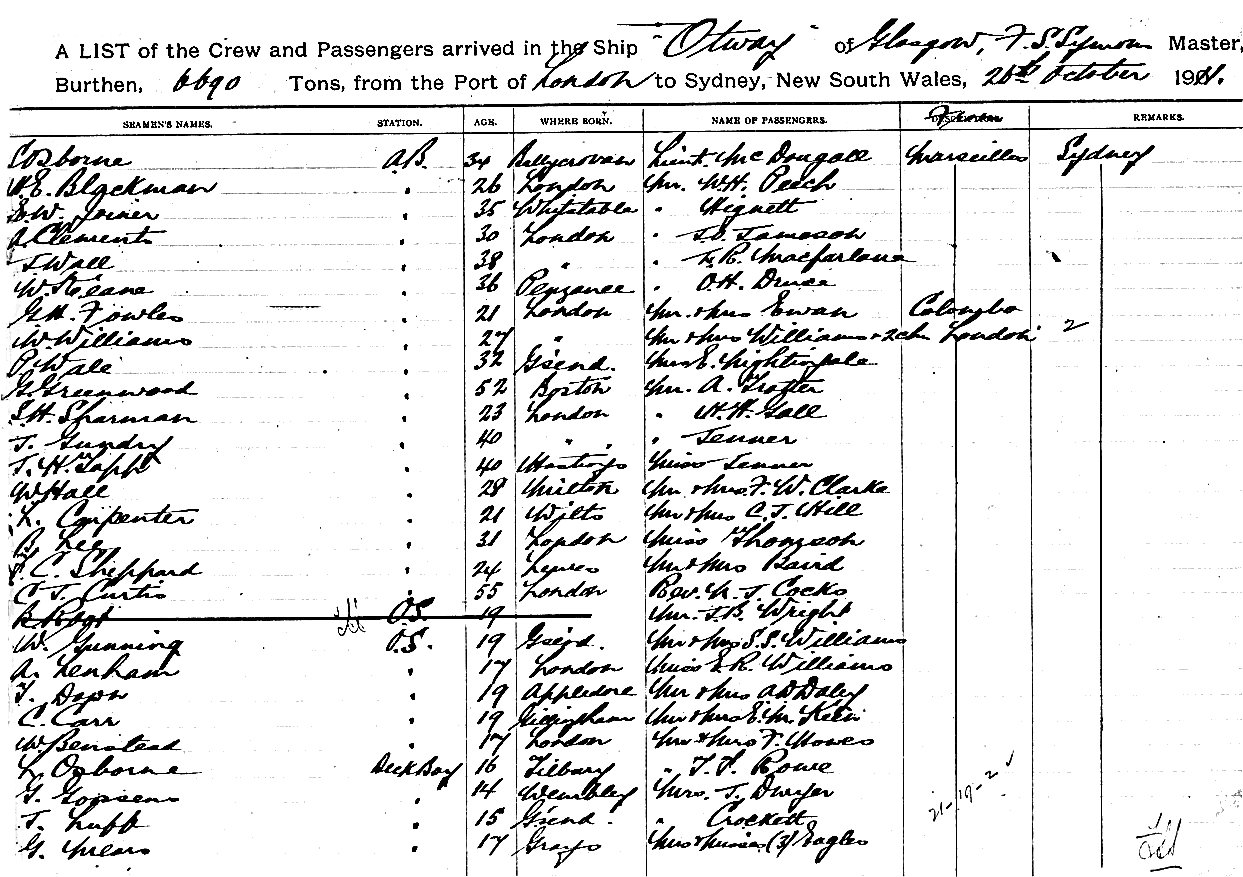 A LIST of the Crew and Passengers arrived in the Ship "Otway" of Glasgow, F. S. Symons Master,
Burthen, 6690 Tons, from the Port of London to Sydney, New South Wales, 26th October 1911.
SEAMEN'S NAMES. STATION. AGE. WHERE BORN. NAME OF PASSENGERS. REMARKS.
Osborne A.B. 34 Lieut. McDougall Marseilles Sydney
H.E. Blackman " 26 London Mr. W.H. Peech
E.W. Joiner " 35 Whitstable " Hignett
A Clements " 30 London " Jameson
J Wall " 38 " " R. Macfarlane
W. Keane " 36 Penzance " O.H. Druce
G.H. Fowles " 21 London Mr. & Mrs Ewan Colombo
W. Williams " 27 " Mr & Mrs Williams & 2 ch London 2
P. Wale " 32 G'send. Mrs E. Nightingale
G. Greenwood " 52 Boston Mr. A.
S.H. Sharman " 23 London " H.H. Gall
T. Gundry " 40 " " Jenner
T.H. Tapp " 40 Hastings Miss Jenner
W Hall " 28 Milton Mr & Mrs F. W. Clarke
L. Carpenter " 21 Wilts Mr & Mrs C.J. Hill
A. Lee " 31 London Miss Thomson
C. Sheppard " 24 Lewes Mr & Mrs Baird
C. J. Curtis " 55 London Rev. N. J. Cocks
O.S. 19 Mr. J.B. Wright
W. Gunning O.S. 19 G'send. Mr & Mrs S.S. Williams
A. Lenham " 17 London Miss E.R. Williams
T. Down " 19 Appledore Mr & Mrs A D Daley
C. Carr " 19 Gillingham Mr & Mrs E. M. Klein
W. Benstead " 17 London Mr & Mrs F. Mowes
L. Osborne Deck Boy 16 Tilbury " Rowe
G. " 14 Wembley Mrs. J. Dwyer
T. Luff " 15 G'send. " Crockett
G. Mears " 17 Grays Mrs & Misses (3) Eagles
21-19-2